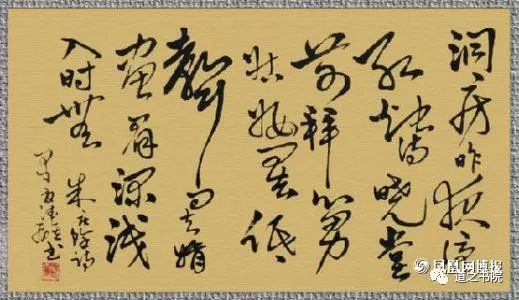 洞房昨夜停
红烛待晓堂
前拜舅
姑妆罢低
声问夫婿
画眉深浅
入时无
朱庆馀诗
书
凤凰网博报
道之书院